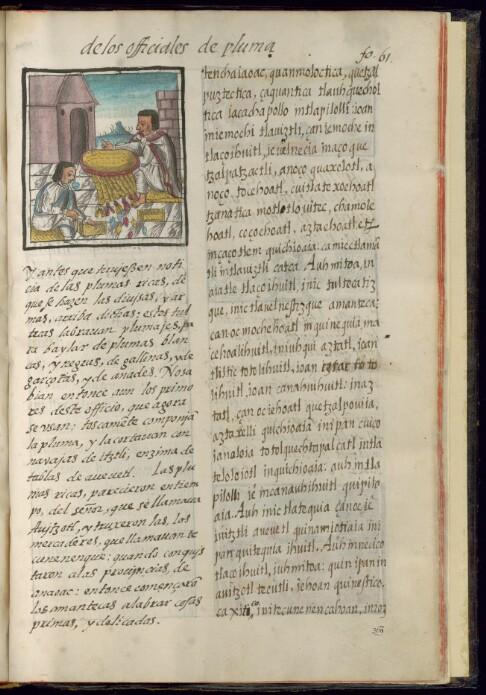 de los officiales de pluma
fo. 61.
Y antes que tuujeßen noti
cia de las plumas ricas, de
que se hazen las diujsas, y ar
mas, arriba dichas: estos tul
tecas labrauan plumajes, pa
ra baylar de plumas blan
cas, y negras, de gallinas, y de
garçotas, y de anades. No sa
bian entonce aun los primo
res deste officio, que agora
se vsan: toscamente componjã
la pluma, y la cortauan con
navajas de itztli, enzima de
tablas de aueuetl. Las plu
mas ricas, parecieron en tiem
po, del señor, que se llamaua
Aujtzotl, y truxeron las, los
mercaderes, que llamauan te
cunenenque: quando conqujs
taron a las proujncias, de
anaoac: entonce començarõ
los amantecas a labrar cosas
primas, y delicadas.
tenchaiaoac, quanmoloctica, quetzal
puztectica, çaquantica tlauhquechol
tica iacachapollo intlapilolli: ioan
in ie mochi tlauiztli, çan ie moche in
tlaçoihuitl, ie uel necia in aço que
tzalpatzactli, anoço quaxolotl, a
noço, toçehoatl, cuitlatexochoatl
tzanatica motlotlouitec, chamole
hoatl, çoçoehoatl, aztaehoatl etz.
in çaço tlein quichioaia: ca miec tlamã
tli in tlauiztli catca. Auh mitoa, in
aiatle tlaçoihuitl, inic tultecatiz
que, inic tlauelnestizque amanteca:
çan oc mochehoatl in quinequia ma
cehoalihuitl, in iuhqui aztatl, ioan
tliltic totolihuitl, ioan
lihuitl, ioan canahuihuitl: in az
tatl, çan oc iehoatl quetzalpouia,
aztaxelli quichioaia inipan cuico
ianaloia totolquechtapalcatl intla
teloloiotl in quichioaia: auh in tla
pilolli ie in canauhihuitl quipilo
aia. Auh inic tlatequia çan oc ie
in itztli aueuetl quinamiotiaia ini
pan quitequia ihuitl. Auh in neçico
tlaçoihuitl, iuh mitoa: quin ipan in
auitzotl tecutli, iehoan quinestico.
ca xiti, in itecunenencahoan, in oz